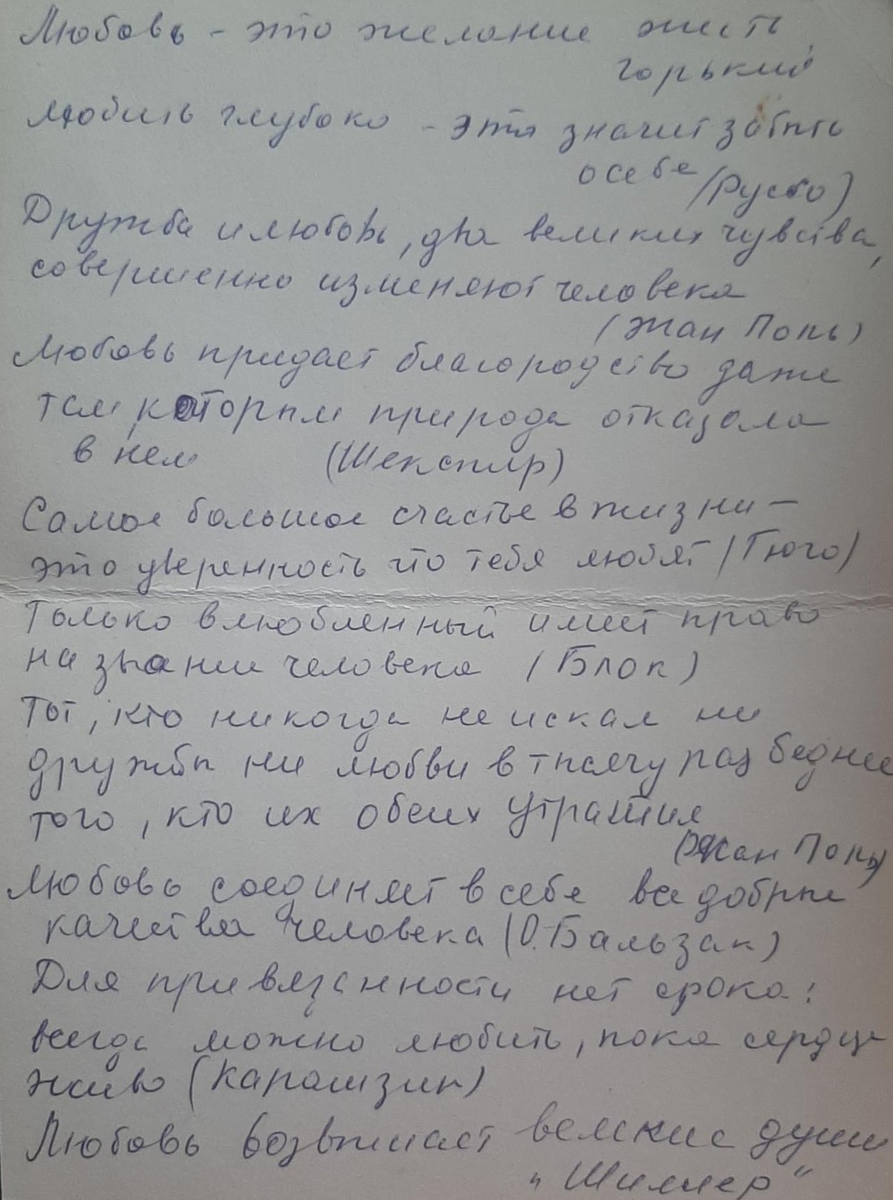 Любовь - это желание жить
Горький
Любить глубоко - это значит забыть
о себе (Руссо)
Дружба и любовь, два великих чувства,
совершенно изменяют человека
(Жан Поль)
Любовь придает благородство даже
тем, которым природа отказала
в нем (Шекспир)
Самое большое счастье в жизни -
это уверенность что тебя любят (Гюго)
Только влюбленный имеет право
на звание человека (Блок)
Тот, кто никогда не искал ни
дружбы ни любви в тысячу раз беднее
того, кто их обеих утратил
(Жан Поль)
Любовь соединяет в себе все добрые
качества человека (О. Бальзак)
Для привязанности нет срока:
всегда можно любить, пока сердце
живо (Карамзин)
Любовь возвышает великие души
"Шиллер"